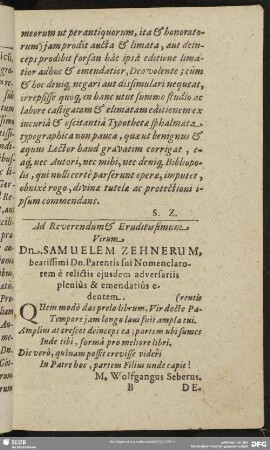 meorum ut perantiquorum, ita & honorato-
rum, jam prodit aucta & limata, aut dein-
ceps prodibit forsan hâc ipsâ editione lima-
tior adhuc & emendatior, Deo volente; cùm
& hoc deniq; negari aut dissimulari nequeat,
irrepsisse quoq; in hanc utut summo studio ac
labore castigatam & elimatam editionem ex
incuriâ & oscitantiâ Typothetæ sphalmata
typographica non pauca, quæ ut benignus &
æquus Lector haud gravatim corrigat, e-
aq́; nec Autori, nec mihi, nec deniq; Bibliopo-
lis, qui nulli certè parserunt operæ, imputet,
obnixè rogo, divinæ tutelæ ac protectioni i-
psum commendans.
S. Z.
Ad Reverendum & Eruditissimum
Virum
Dn. SAMUELEM ZEHNERUM,
beatissimi Dn. Parentis sui Nomenclato-
rem è relictis ejusdem adversariis
pleniùs & emendatiùs e-
dentem. (rentis
QUem modò das prelo librum, Vir docte Pa-
Tempore jam longo laus fuit ampla tui.
Amplius at crescet deinceps ea; partem ubi sumes
Inde tibi, formâ pro meliore libri.
Dic verò, quînam possit crevisse videri
In Patre hoc, partem Filius unde capit?
M. Wolfgangus Seberus.
B DE-
SLUB